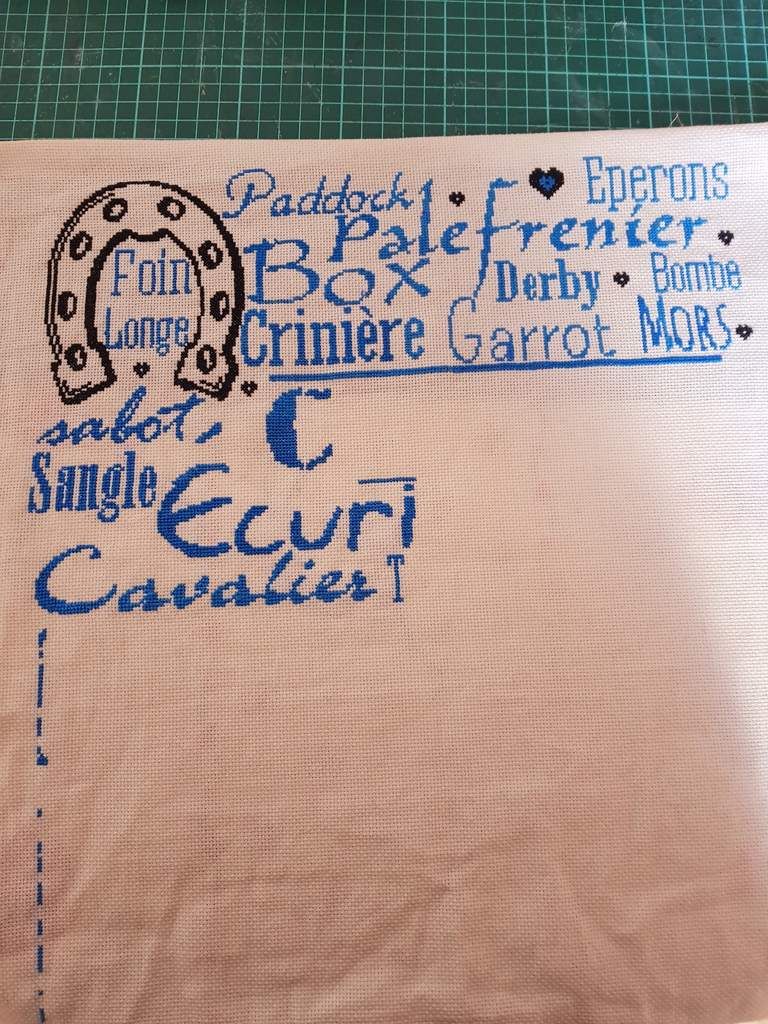 Paddock Eperons
Palefrenier
Foin Box Derby Bombe
Longe Crinière Garrot MORS
sabot, C
Sangle Ecuri
Cavalier T